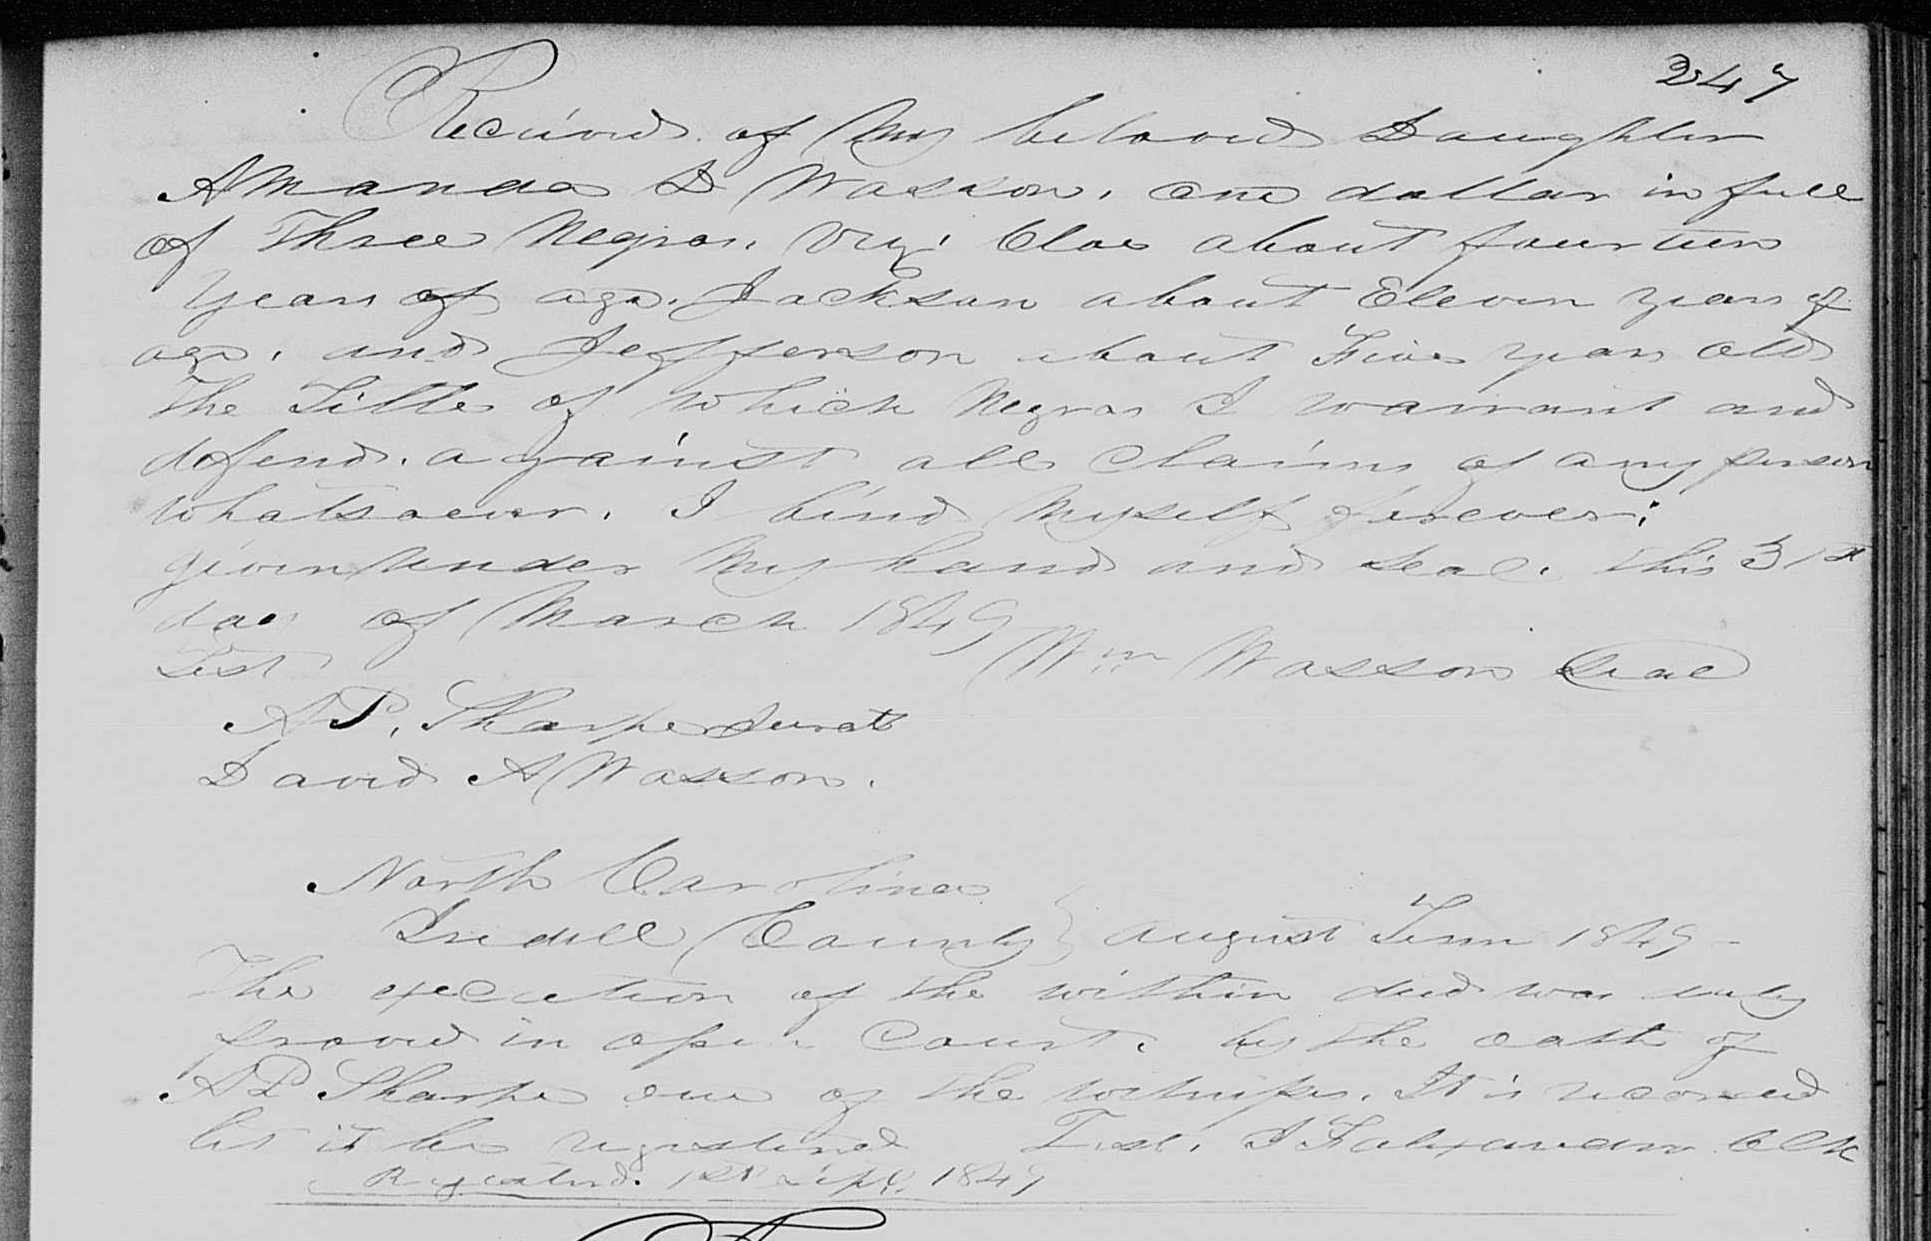 247
Received of My beloved Daughter
Amanda D Wasson. one dollar in full
of Three Negros. Viz. Cloe about fourteen
years of age. Jackson about Eleven years of
age. and Jefferson about Five years old
The Title of which Negros I warrant and
defend. against all claims of any person
whatsoever. I bind Myself forever:
given under My hand and seal. this 31st
day of March 1849
Test Wm Wasson Seal
A P. Sharpe Jurat
David A Wasson.
North Carolina
Iredell County } August Term 1849 -
The execution of the within deed was duly
proved in open Court. by the oath of
A P Sharpe one of the witnesses. It is recorded
let it be registered Test. J F Alexander Clk
Registered. 1st Sept. 1849